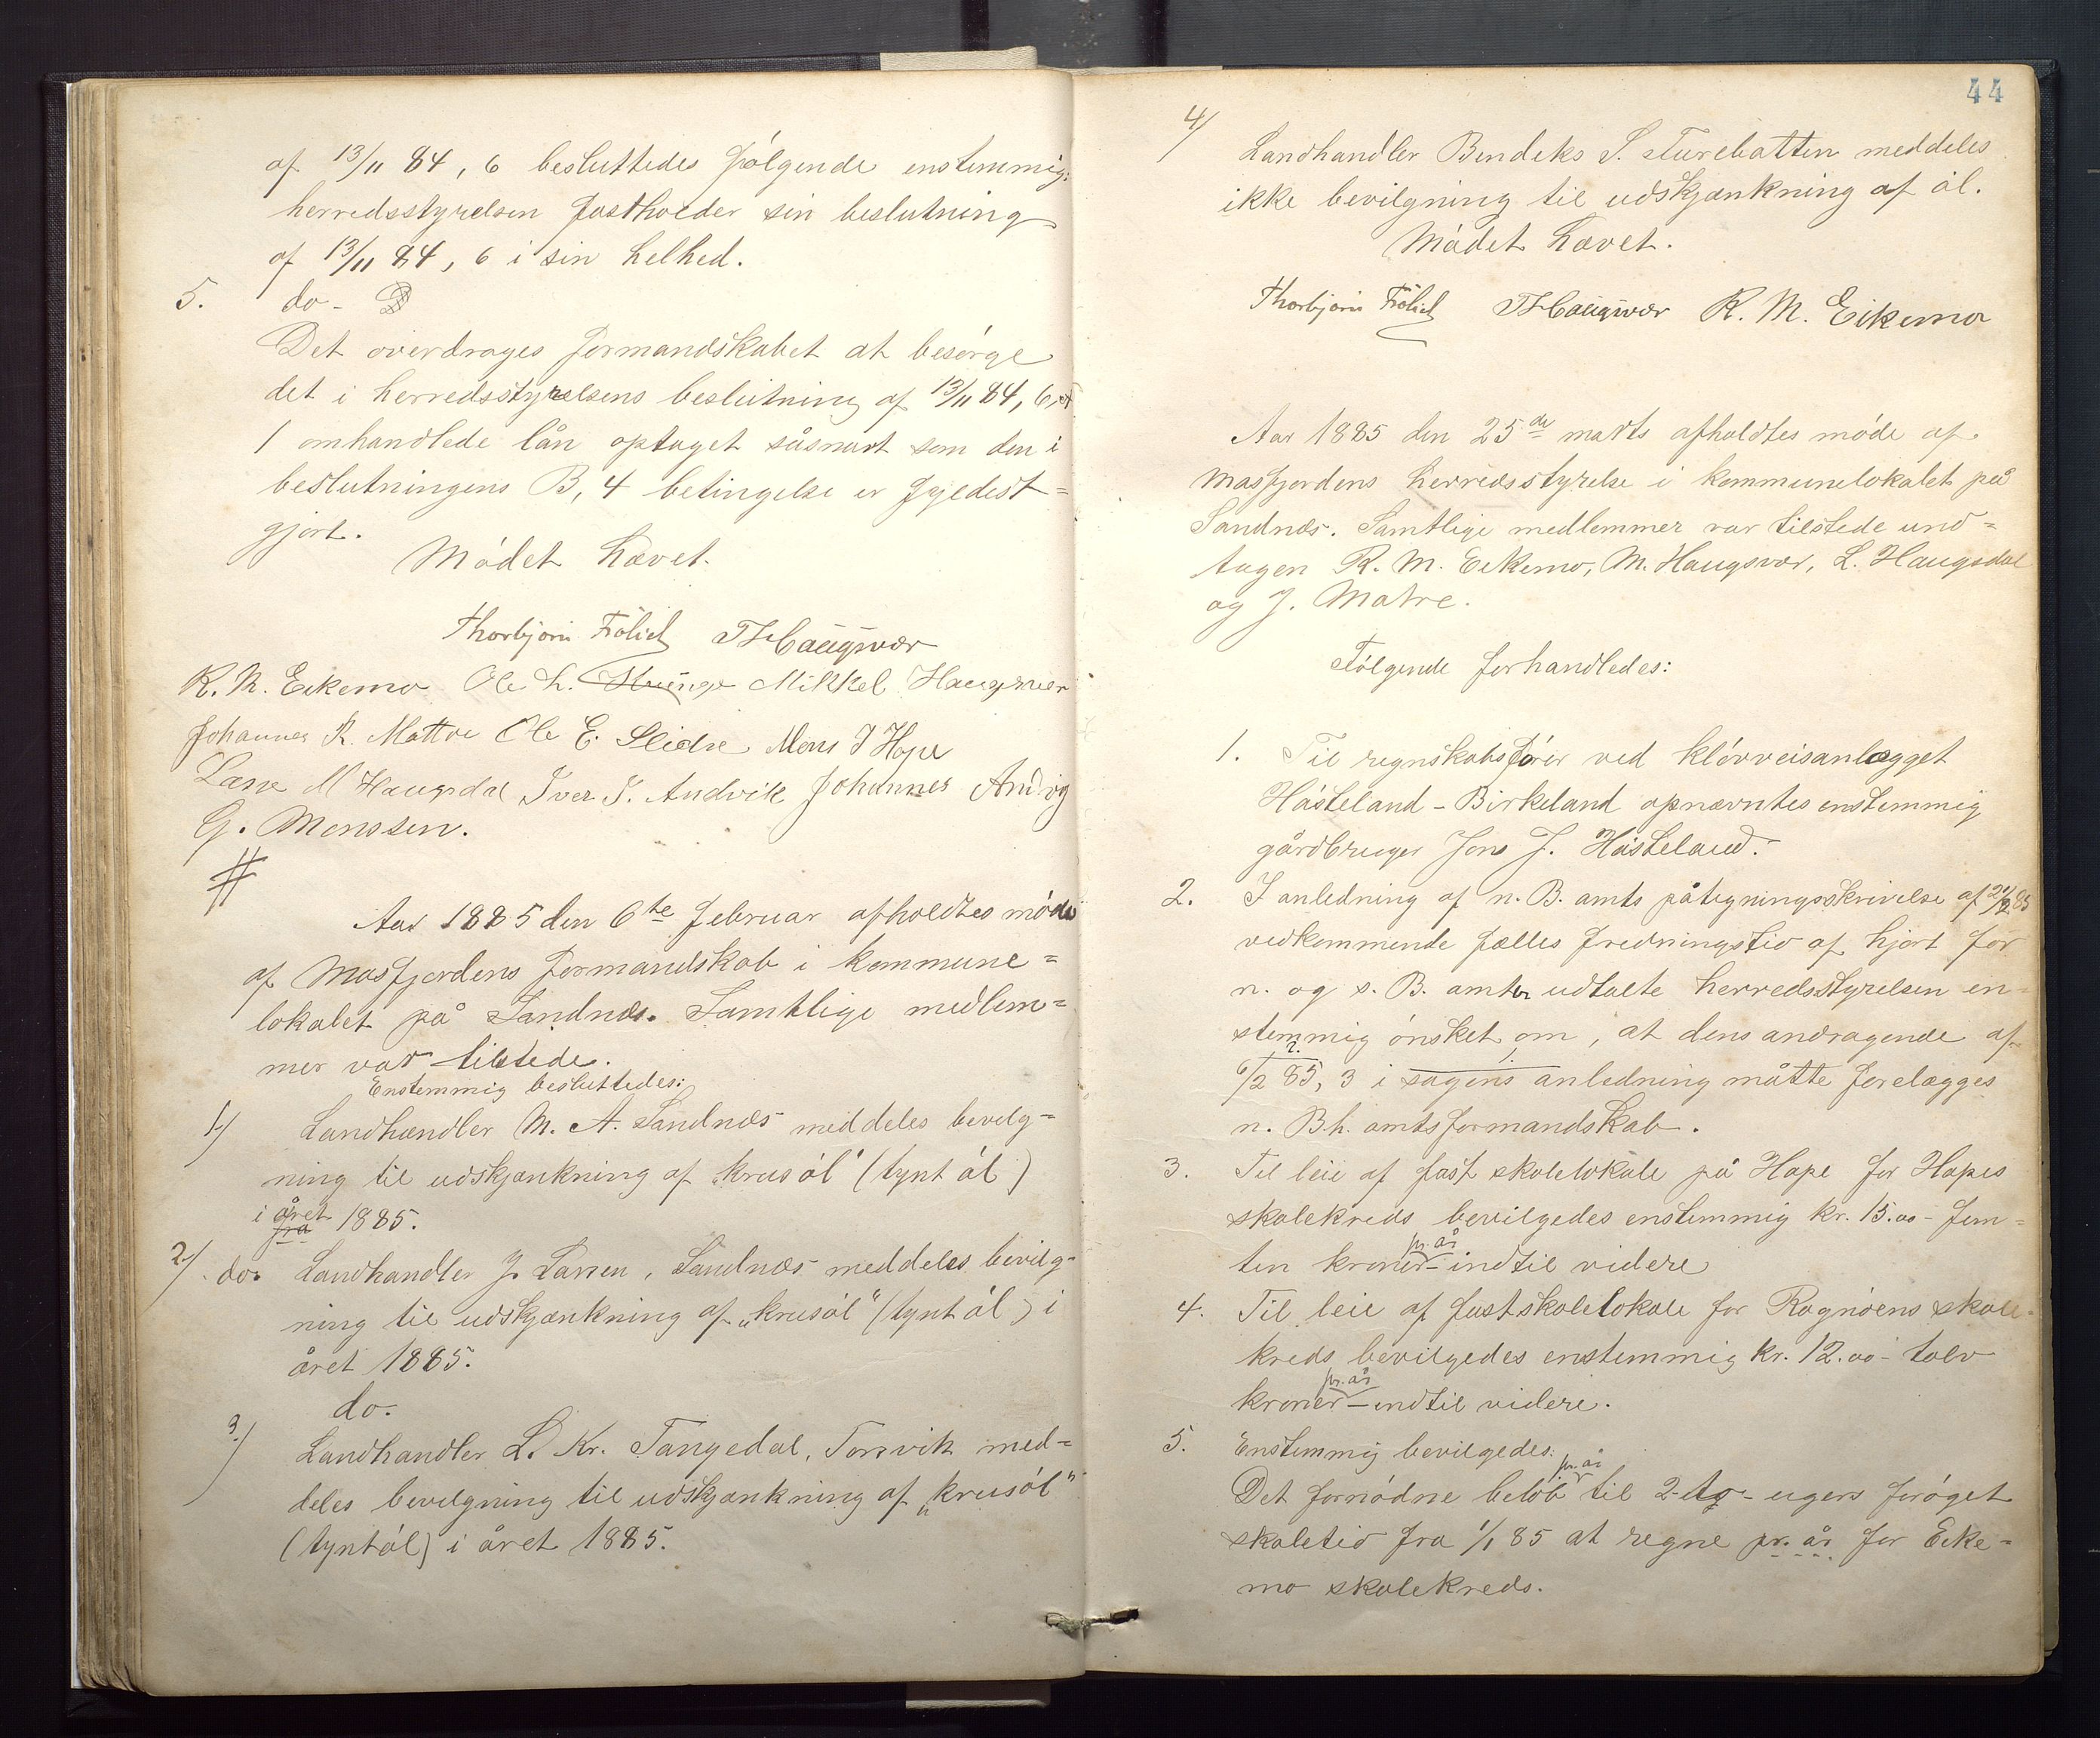 af 13/11 84, 6 besluttedes følgende enstemmig:
herredsstyrelsen fastholder sin beslutning
af 13/11 84, 6 i sin helhed.
5. do -
Det overdrages formandskabet at besørge
det i herredsstyrelsens beslutning af 13/11 84, 6,
1 omhandlede lån optaget såsnart som den i
beslutningens B, 4 betingelse er fyldest=
gjort.
Mødet hævet.
Thorbjørn Frølich T Haugsvær
R. M. Eikemo Ole L. Mikkel Haugsvær
Johannes R. Mattre Ole E. Sleire Mons J Hope
Lasse M Haugsdal Iver I. Andvik Johannes Andvig
G. Monssen.
#
Aar 1885 den 6te februar afholdtes møde
af Masfjordens formandskab i kommune=
lokalet på Sandnæs. Samtlige medlem=
mer var tilstede.
Enstemmig besluttedes:
1/ Landhandler M. A. Sandnæs meddeles bevilg=
ning til udskjænkning af "krusøl" (tynt øl)
i året fra 1885.
2/. do. Landhandler J. Larsen, Sandnæs meddeles bevilg=
ning til udskjænkning af „krusøl" (tynt øl) i
året 1885.
do.
3/ Landhandler L. Kr. Tangedal, Torsvik med=
deles bevilgning til udskjænkning af „krusøl"
(tyntøl) i året 1885.
44
4/
Landhandler Bendiks S. meddeles
ikke bevilgning til udskjænkning af øl.
Mødet hævet.
Thorbjørn Frølich T Haugsvær R. M. Eikemo
Aar 1885 den 25de marts afholdtes møde af
Masfjordens herredsstyrelse i kommunelokalet på
Sandnæs. Samtlige medlemmer var tilstede und=
tagen R. M. Eikemo, M. Haugsvær, L. Haugsdal
og J. Matre.
Følgende forhandledes:
1. Til regnskabsfører ved kløvveisanlægget
Håsteland - Birkeland opnævntes enstemmig
gårdbruger Jens J. Håsteland.
2. I anledning af n. B. amts påtegningsskrivelse af 21/2 85
vedkommende fælles fredningstid af hjort for
n. og s. B. amter udtalte herredsstyrelsen en=
stemmig ønsket om, at dens andragende af
6/2 85, 3 i sagens anledning måtte forelægges
n. Bh. amtsformandskab.
3. Til leie af fast skolelokale på Hope for Hopes
skolekreds bevilgedes enstemmig kr. 15.00 - fem=
ten kroner pr. år - indtil videre
4. Til leie af fast skolelokale for Rognøens skole=
kreds bevilgedes enstemmig kr. 12.00 - tolv
kroner pr. år - indtil videre.
5. Enstemmig bevilgedes:
Det fornødne beløb pr. år til 2 - to - ugers forøget
skoletid fra 1/1 85 at regne pr. år for Eike=
mo skolekreds.